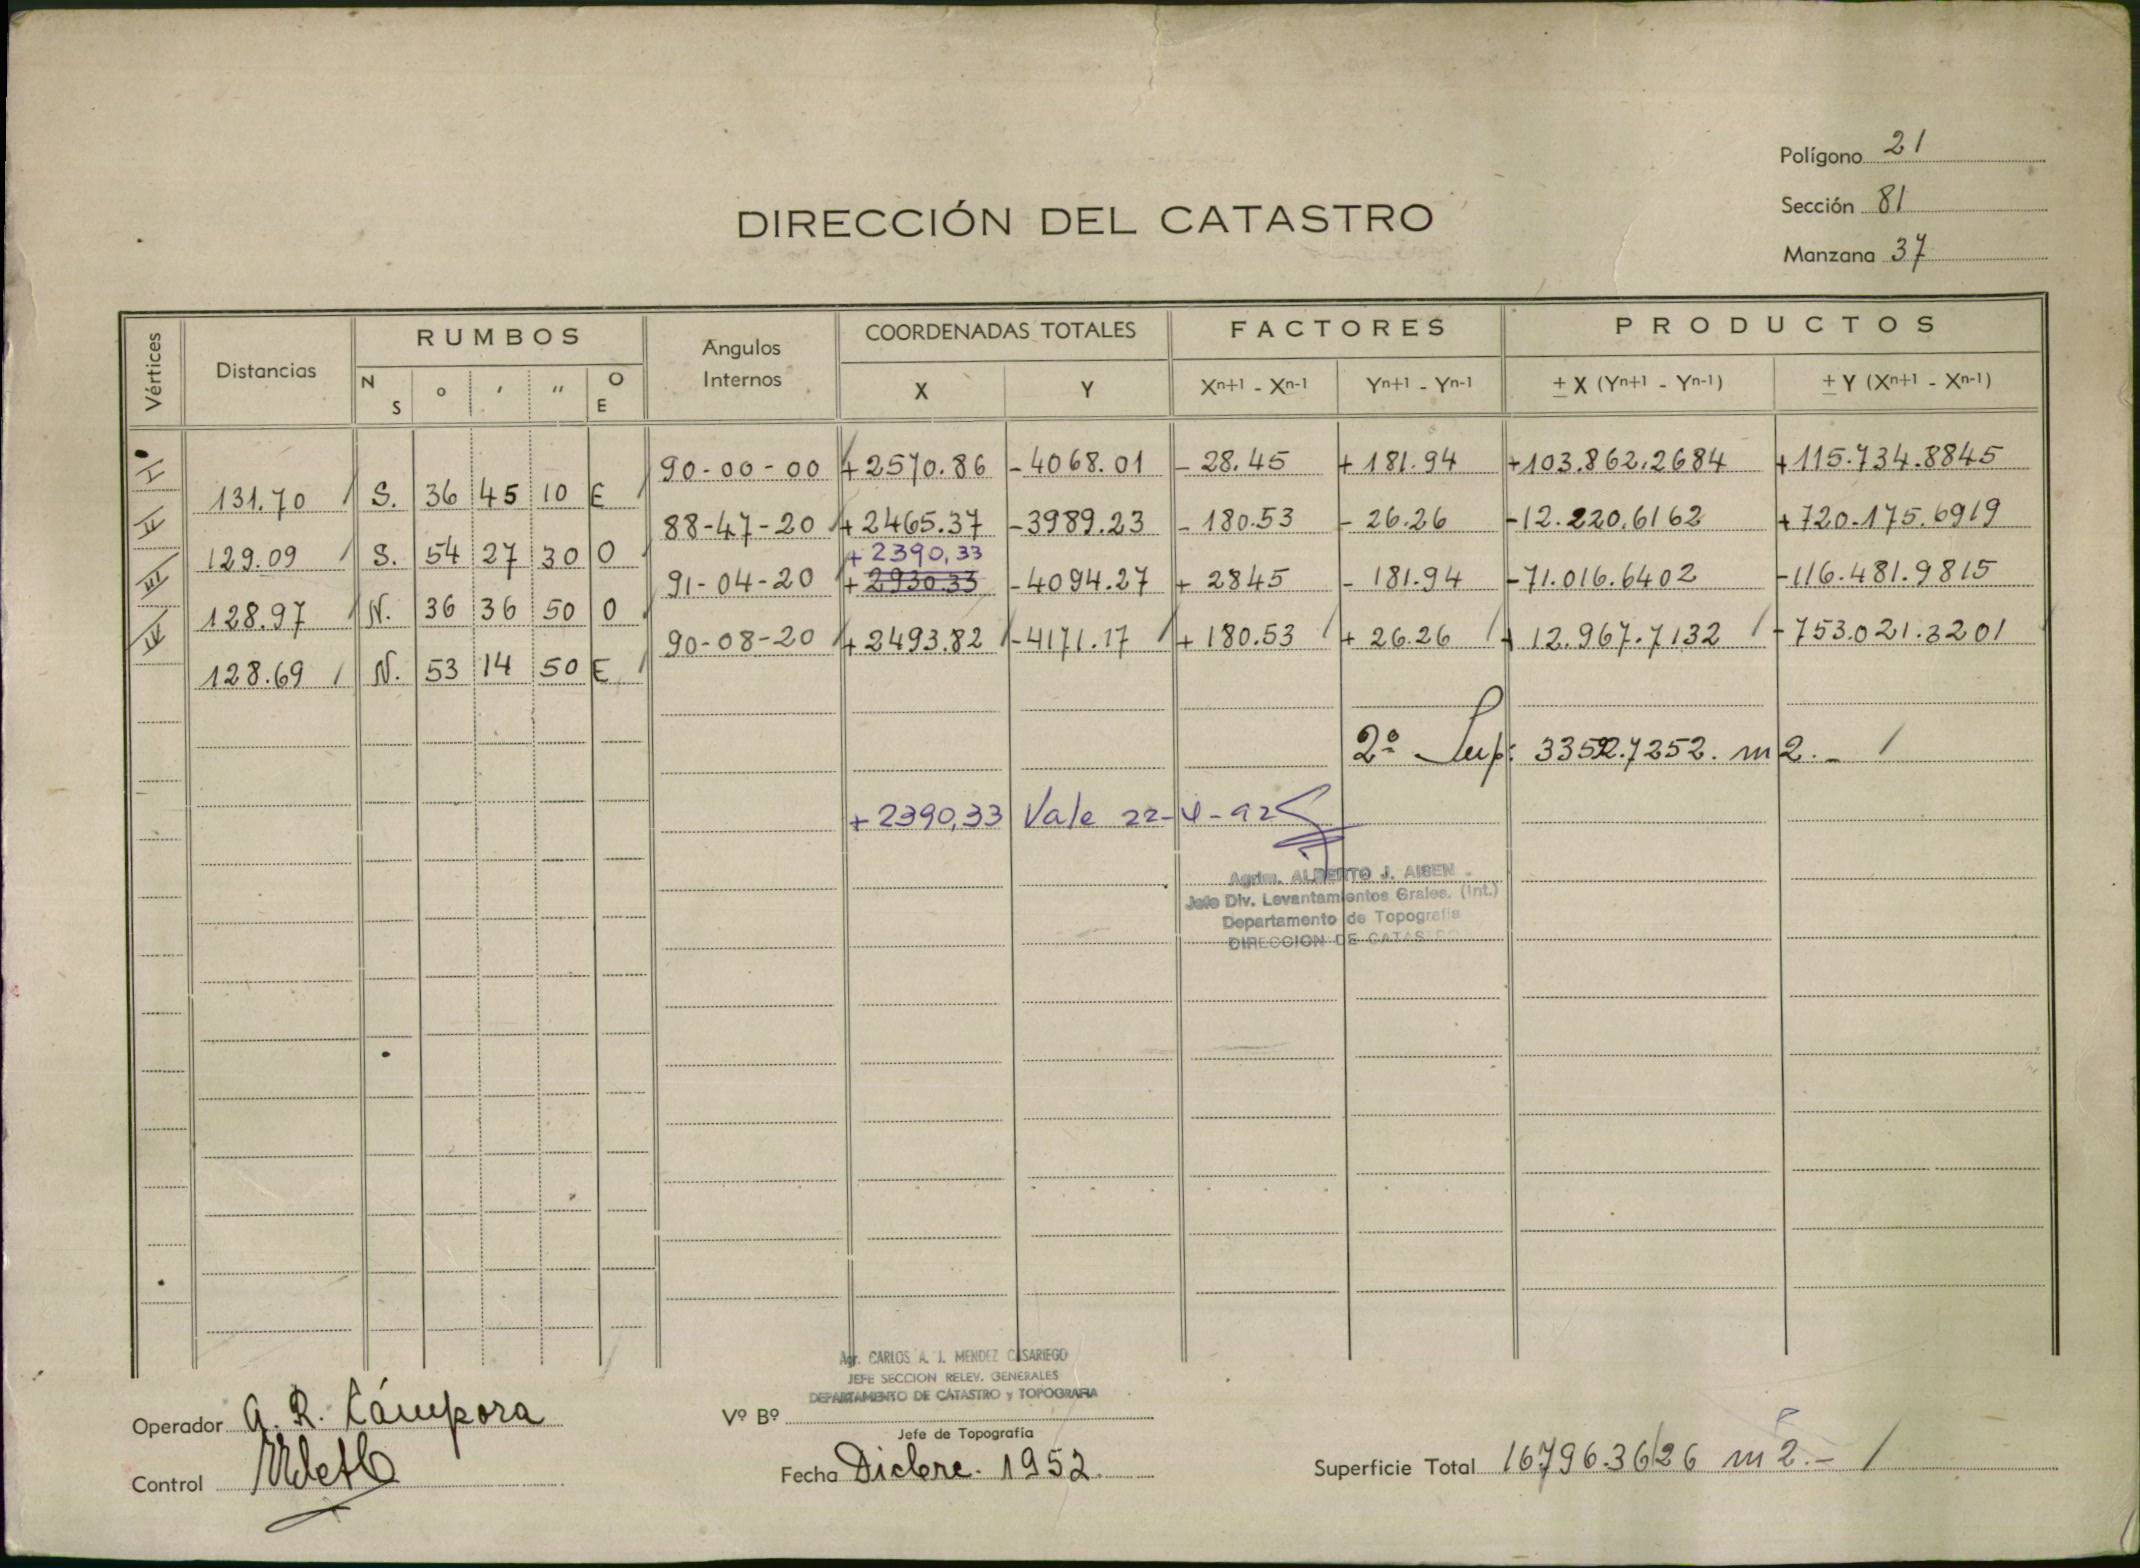 Polígono 21
Sección 81
Manzana 37
DIRECCIÓN DEL CATASTRO
Vértices Distancias RUMBOS Angulos Internos COORDENADAS TOTALES FACTORES PRODUCTOS
N S o ' '' O E X Y Xn+1 - Xn-1 Yn+1 - Yn-1 ± X (Yn+1 - Yn-1) ± Y (Xn+1 - Xn-1)
I 90-00-00 +2570.86 -4068.01 -28.45 +181.94 +103.862.2684 +115.734.8845
131.70 S. 36 45 10 E
II 88-47-20 +2465.37 -3989.23 -180.53 -26.26 -12.220.6162 +720.175.6919
+2390,33
129.09 S. 54 27 30 O
III 91-04-20 +2930.33 -4094.27 +2845 -181.94 -71.016.6402 -116.481.9815
128.97 N. 36 36 50 O
IV 90-08-20 +2493.82 -4171.17 +180.53 +26.26 + 12.967.7132 -753.021.3201
128.69 N. 53 14 50 E
2º Sup: 33592.7252. m2.-
+2390,33 Vale 22-4-92
Agrim. ALBERTO J. AISEN
Jefe Div. Levantamientos Grales. (Int.)
Departamento de Topografía
DIRECCION DE CATASTRO
Agr. CARLOS A. J. MENDEZ CASARIEGO
JEFE SECCION RELEV. GENERALES
DEPARTAMENTO DE CATASTRO y TOPOGRAFIA
Operador A. R. Cámpora
Vº Bº
Jefe de Topografía
Control
Fecha Dicbre. 1952
Superficie Total 16796.3626 m2.-